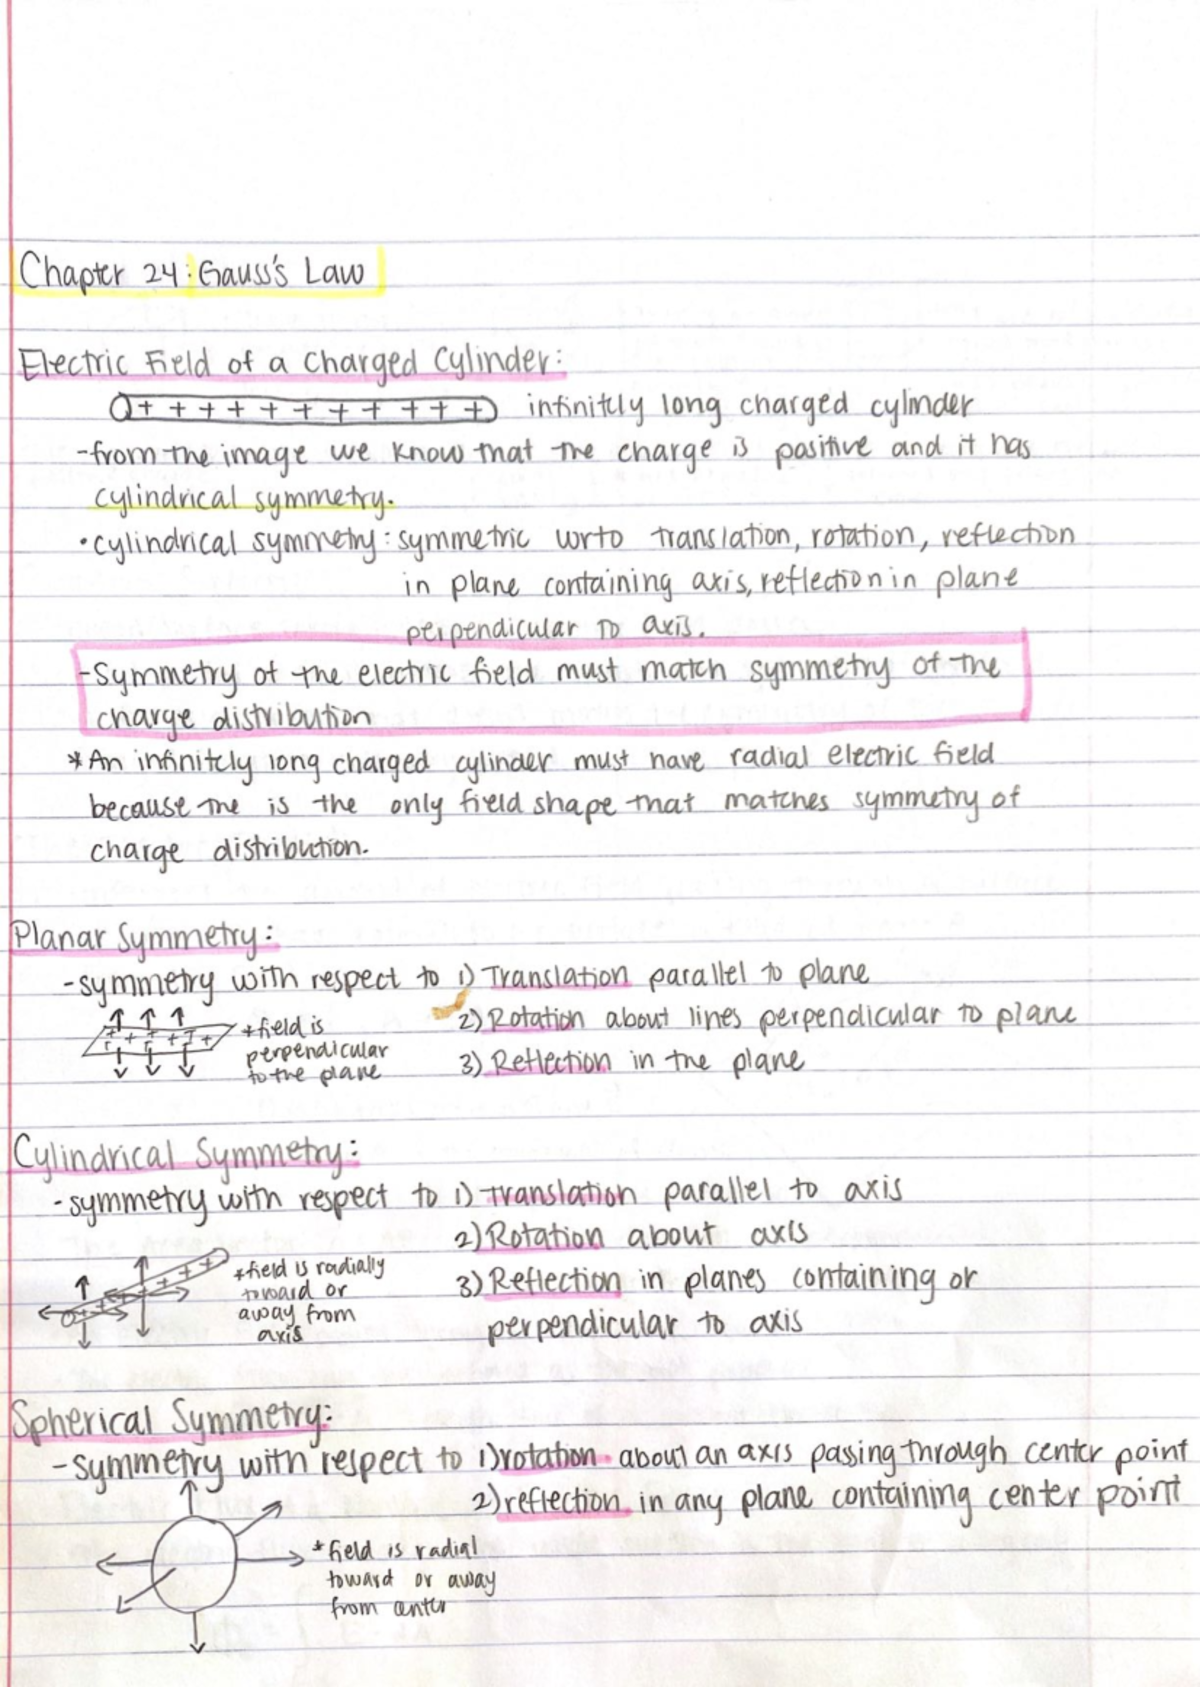 Chapter 24: Gauss's Law
Electric Field of a Charged Cylinder:
+ + + + + + + + + + + infinitely long charged cylinder
-from the image we know that the charge is positive and it has
cylindrical symmetry.
•cylindrical symmetry: symmetric wrto translation, rotation, reflection
in plane containing axis, reflection in plane
perpendicular to axis.
-Symmetry of the electric field must match symmetry of the
charge distribution
*An infinitely long charged cylinder must have radial electric field
because the is the only field shape that matches symmetry of
charge distribution.
Planar Symmetry:
-symmetry with respect to 1) Translation parallel to plane
2) Rotation about lines perpendicular to plane
3) Reflection in the plane
*field is
perpendicular
to the plane
Cylindrical Symmetry:
-symmetry with respect to 1) translation parallel to axis
2) Rotation about axis
3) Reflection in planes containing or
perpendicular to axis
*field is radially
toward or
away from
axis
Spherical Symmetry:
-symmetry with respect to 1) rotation about an axis passing through center point
2) reflection in any plane containing center point
*field is radial
toward or away
from center